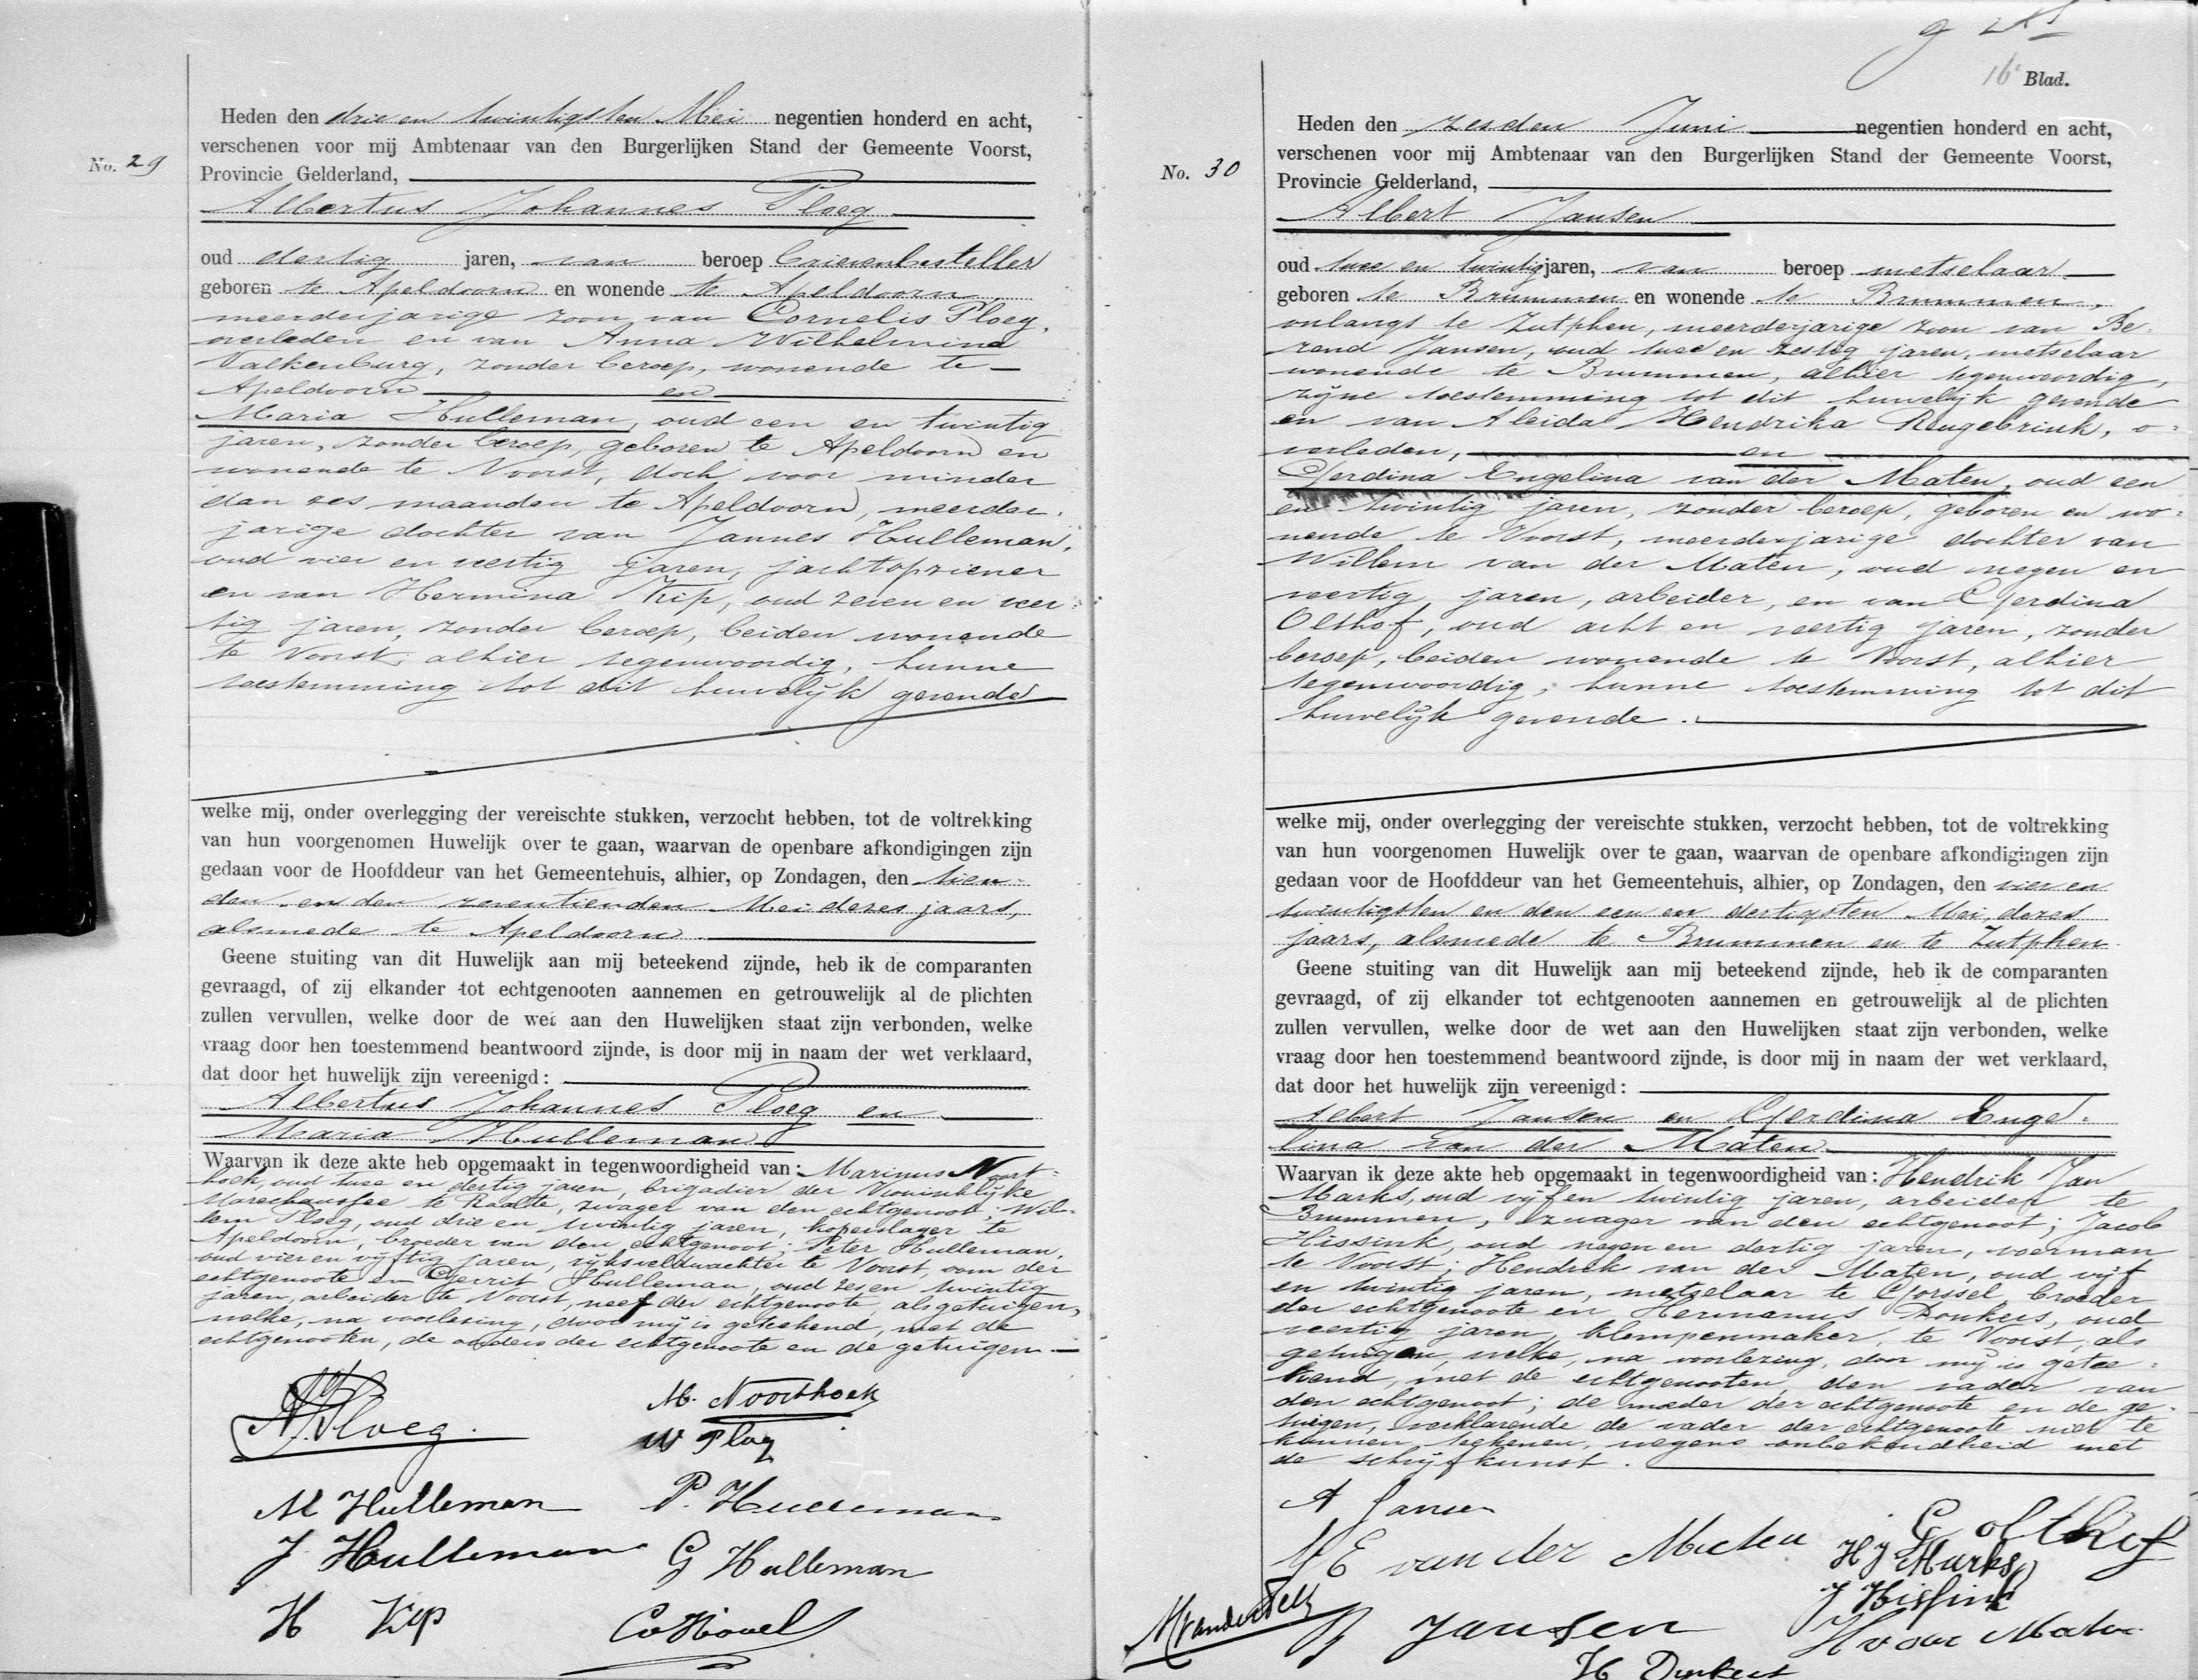 No. 29
Heden den drie en twintigsten Mei negentien honderd en acht,
verschenen voor mij Ambtenaar van den Burgerlijken Stand der Gemeente Voorst,
Provincie Gelderland,
Albertus Johannes Ploeg
oud dertig jaren, van beroep brievenbesteller
geboren te Apeldoorn en wonende te Apeldoorn,
meerderjarige zoon van Cornelis Ploeg,
overleden en van Anna Wilhelmina
Valkenburg, zonder beroep, wonende te
Apeldoorn en
Maria Hulleman, oud een en twintig
jaren, zonder beroep, geboren te Apeldoorn en
wonende te Voorst, doch voor minder
dan zes maanden te Apeldoorn, meerder-
jarige dochter van Jannes Hulleman,
oud vier en veertig jaren, jachtopziener
en van Hermina Kip, oud zeven en veer-
tig jaren, zonder beroep, beiden wonende
te Voorst, alhier tegenwoordig, hunne
toestemming tot dit huwelijk gevende
welke mij, onder overlegging der vereischte stukken, verzocht hebben, tot de voltrekking
van hun voorgenomen Huwelijk over te gaan, waarvan de openbare afkondigingen zijn
gedaan voor de Hoofddeur van het Gemeentehuis, alhier, op Zondagen, den tien-
den en den zeventienden Mei dezes jaars,
alsmede te Apeldoorn.
Geene stuiting van dit Huwelijk aan mij beteekend zijnde, heb ik de comparanten
gevraagd, of zij elkander tot echtgenooten aannemen en getrouwelijk al de plichten
zullen vervullen, welke door de wet aan den Huwelijken staat zijn verbonden, welke
vraag door hen toestemmend beantwoord zijnde, is door mij in naam der wet verklaard,
dat door het huwelijk zijn vereenigd:
Albertus Johannes Ploeg en
Maria Hulleman
Waarvan ik deze akte heb opgemaakt in tegenwoordigheid van: Marinus Noort-
hoek, oud twee en dertig jaren, brigadier der Koninklijke
Marechaussee te Raalte, zwager van den echtgenoot; Wil-
lem Ploeg, oud drie en twintig jaren, koperslager te
Apeldoorn, broeder van den echtgenoot; Peter Hulleman,
oud vier en vijftig jaren, rijksveldwachter te Voorst, oom der
echtgenoote en Gerrit Hulleman, oud zes en twintig
jaren, arbeider te Voorst, neef der echtgenoote, als getuigen,
welke, na voorlezing, door mij is geteekend, met de
echtgenooten, de ouders der echtgenoote en de getuigen.
A J Ploeg.
M. Noorthoek
W Ploeg
M Hulleman
P. Hulleman
J Hulleman
G Hulleman
H Kip
16e Blad.
No. 30
Heden den zesden Juni negentien honderd en acht,
verschenen voor mij Ambtenaar van den Burgerlijken Stand der Gemeente Voorst,
Provincie Gelderland,
Albert Jansen
oud twee en twintig jaren, van beroep metselaar
geboren te Brummen en wonende te Brummen,
onlangs te Zutphen, meerderjarige zoon van Be-
rend Jansen, oud twee en zestig jaren, metselaar
wonende te Brummen, alhier tegenwoordig,
zijne toestemming tot dit huwelijk gevende
en van Aleida Hendrika Rengebrink, o-
verleden, en
Gerdina Engelina van der Maten, oud een
en twintig jaren, zonder beroep, geboren en wo-
nende te Voorst, meerderjarige dochter van
Willem van der Maten, oud negen en
veertig jaren, arbeider, en van Gerdina
Olthof, oud acht en veertig jaren, zonder
beroep, beiden wonende te Voorst, alhier
tegenwoordig, hunne toestemming tot dit
huwelijk gevende.
welke mij, onder overlegging der vereischte stukken, verzocht hebben, tot de voltrekking
van hun voorgenomen Huwelijk over te gaan, waarvan de openbare afkondigingen zijn
gedaan voor de Hoofddeur van het Gemeentehuis, alhier, op Zondagen, den vier en
twintigsten en den een en dertigsten Mei, dezes
jaars, alsmede te Brummen en te Zutphen.
Geene stuiting van dit Huwelijk aan mij beteekend zijnde, heb ik de comparanten
gevraagd, of zij elkander tot echtgenooten aannemen en getrouwelijk al de plichten
zullen vervullen, welke door de wet aan den Huwelijken staat zijn verbonden, welke
vraag door hen toestemmend beantwoord zijnde, is door mij in naam der wet verklaard,
dat door het huwelijk zijn vereenigd:
Albert Jansen en Gerdina Enge-
lina van der Maten
Waarvan ik deze akte heb opgemaakt in tegenwoordigheid van: Hendrik Jan
Marks, oud vijf en twintig jaren, arbeider te
Brummen, zwager van den echtgenoot; Jacob
Hissink, oud negen en dertig jaren, voerman
te Voorst; Hendrik van der Maten, oud vijf
en twintig jaren, metselaar te Gorssel, broeder
der echtgenoote en Hermanus Donkers, oud
veertig jaren, klompenmaker, te Voorst, als
getuigen, welke, na voorlezing, door mij is getee-
kend, met de echtgenooten, den vader van
den echtgenoot; de moeder der echtgenoote en de ge-
tuigen, verklarende de vader der echtgenoote niet te
kunnen teekenen, wegens onbekendheid met
de schrijfkunst.
A Jansen
G E van der Maten
G olthof
H J Marks
J Hissink
B Jansen
H v der Maten
H Donkers